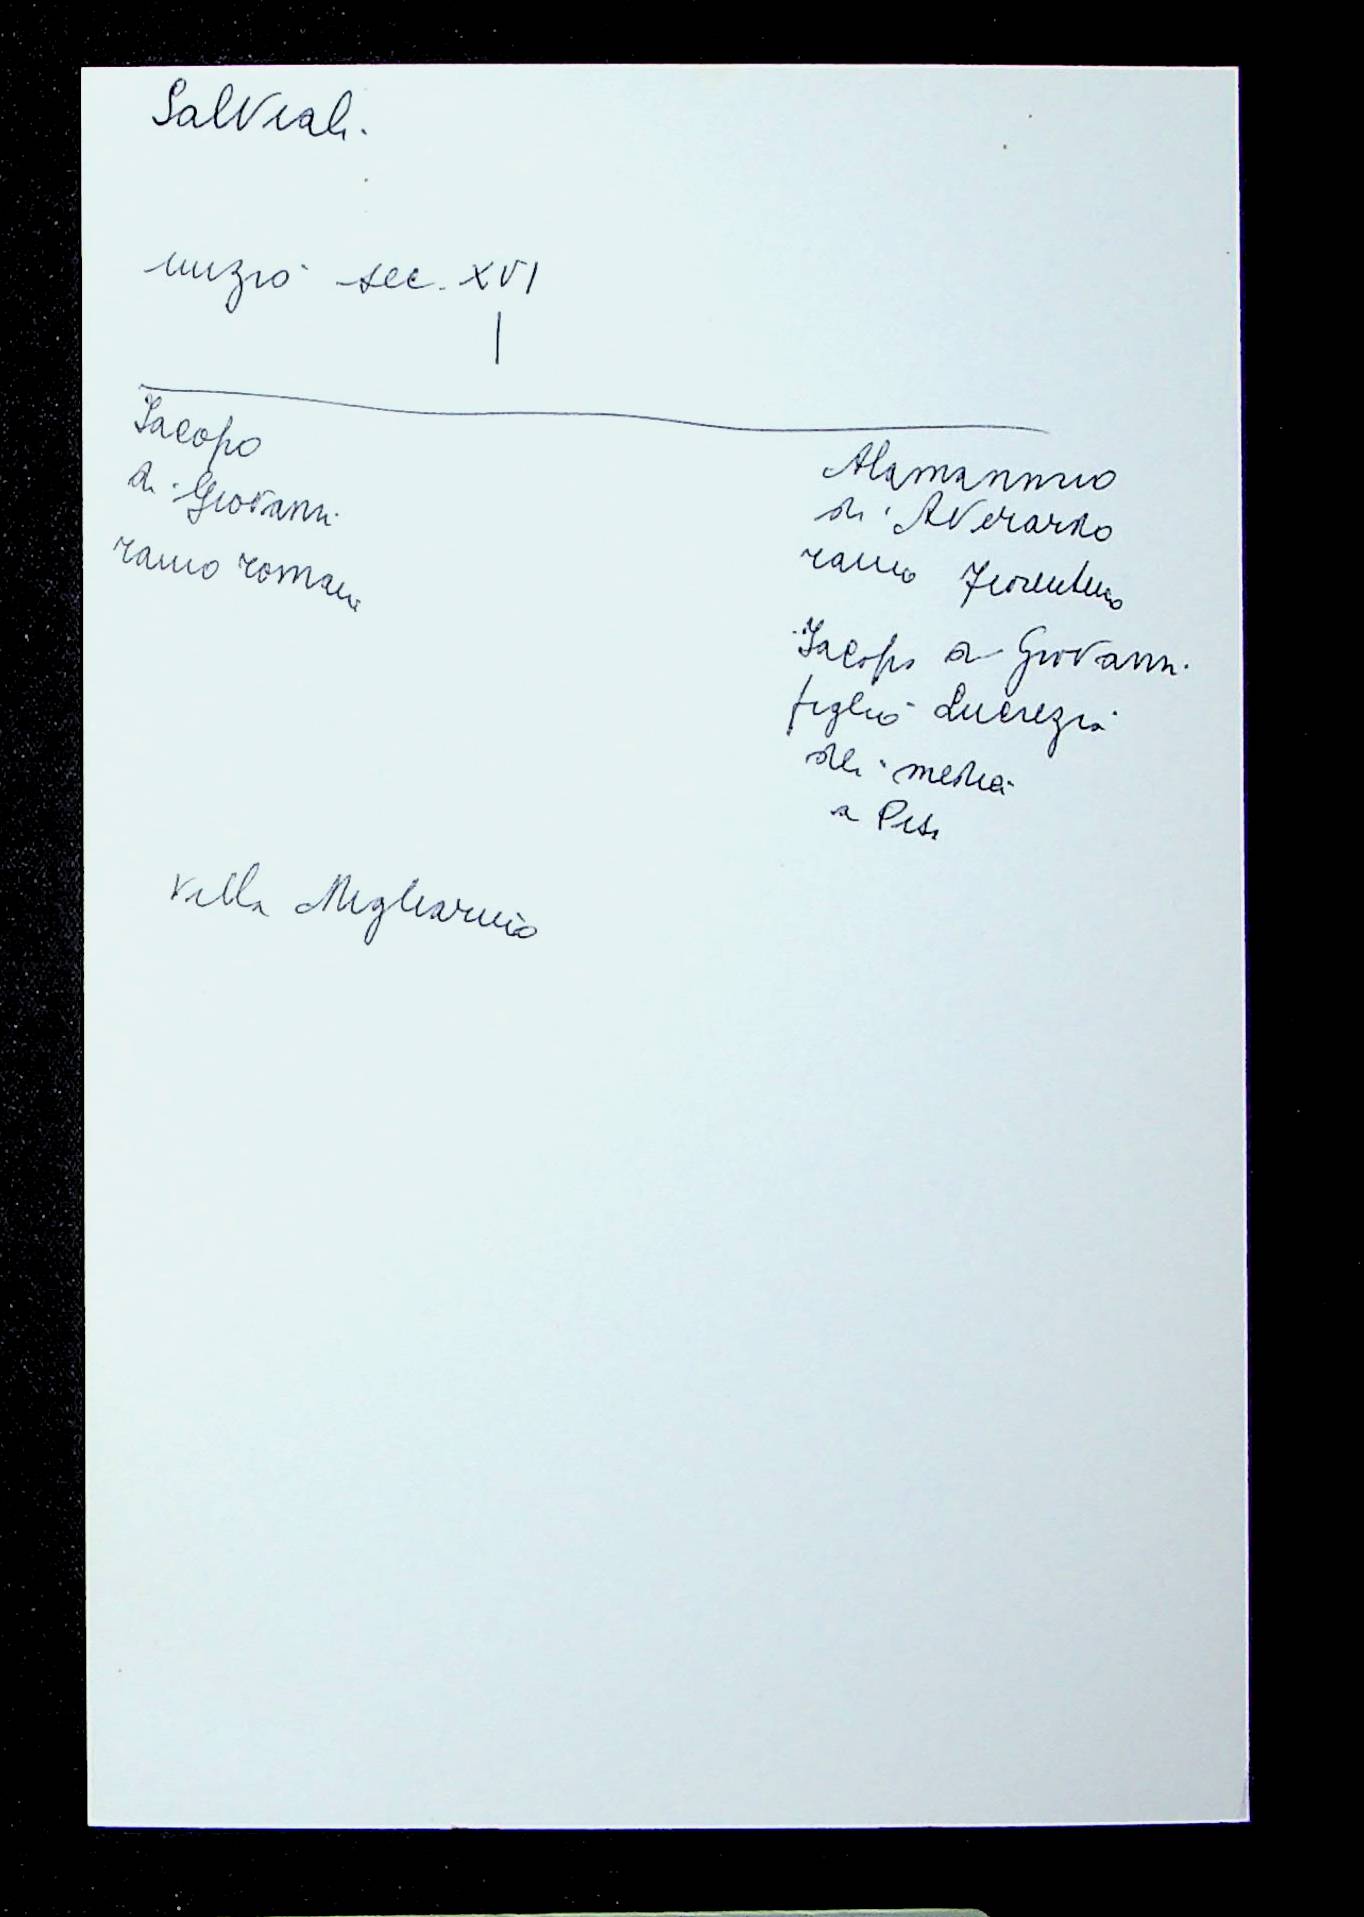 Salviati.
inizio sec. XVI
Iacopo
di Giovanni
ramo roman
Alamanno
di Averardo
ramo fiorentino
Iacopo di Giovanni
figlio Lucrezia
dei medici
a Pisa
Villa Migliarino